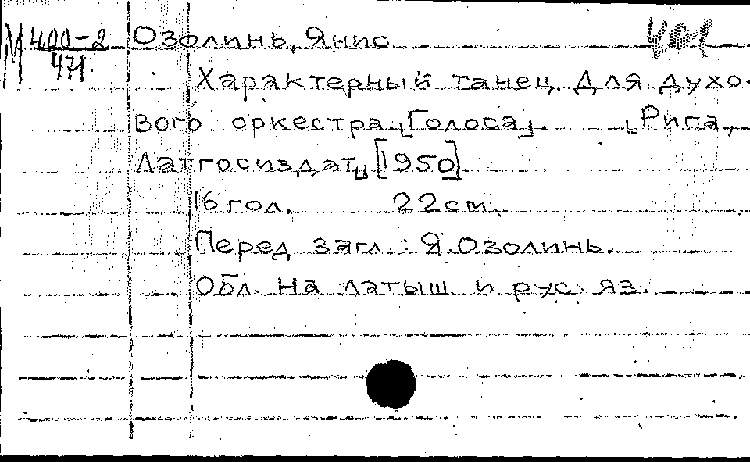 М 400-2 Озолинь, Янис
471
Характерный танец. Для духо-
вого оркестра. [Голоса]. Рига,
Латгосиздат, [1950]
16 гол. 22 см.
Перед загл.: Я. Озолинь.
Обл. на латыш и рус. яз.